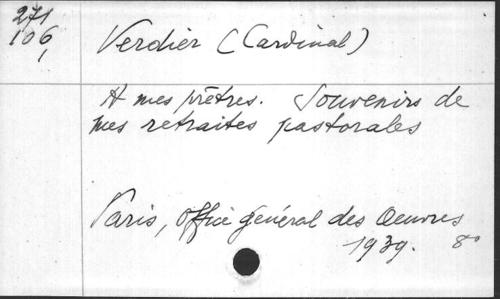 271
106
1
Verdier (Cardinal)
A mes prêtres. Souvenirs de
mes retraites pastorales
Paris, Office général des Oeuvres
1939. 8°